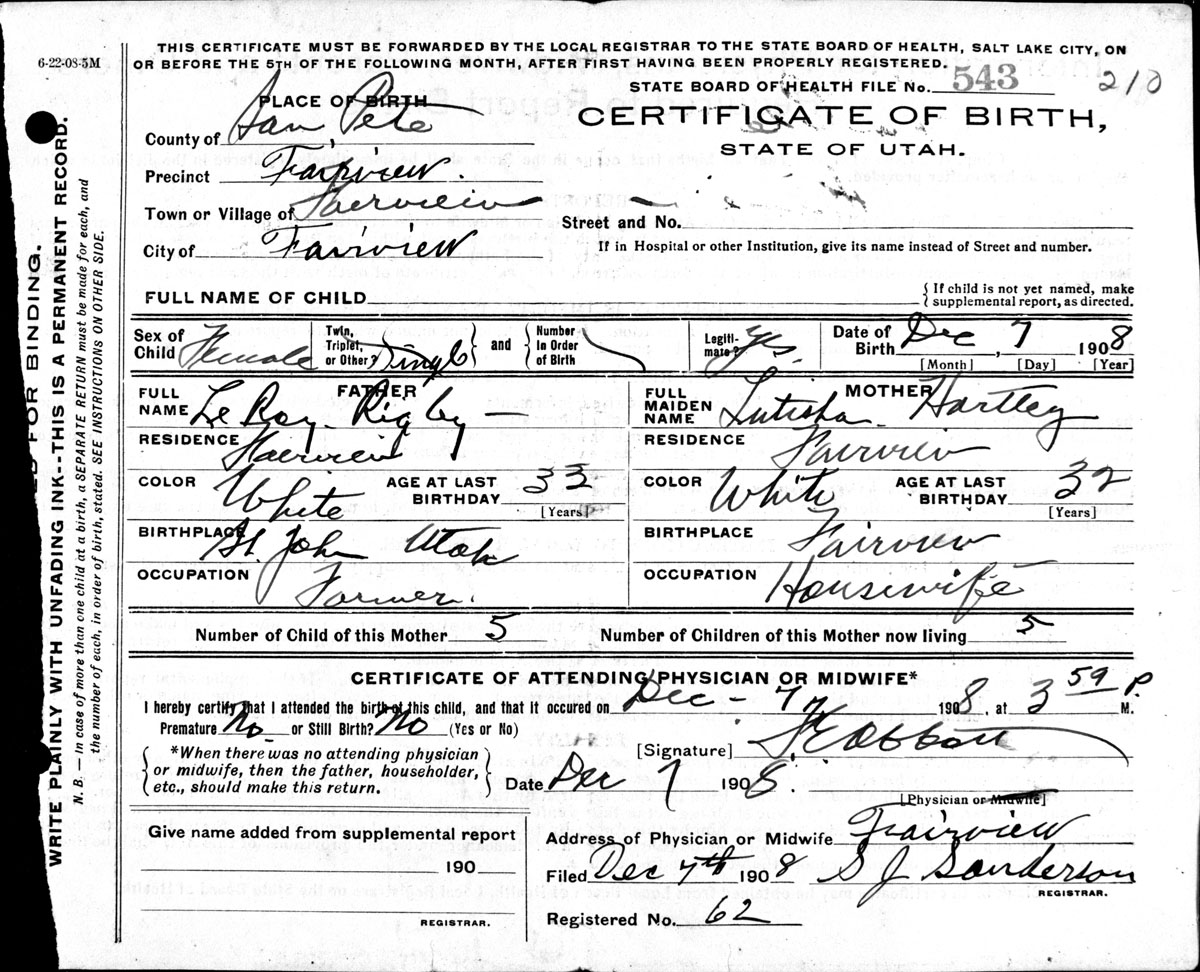 6-22-08-5M
THIS CERTIFICATE MUST BE FORWARDED BY THE LOCAL REGISTRAR TO THE STATE BOARD OF HEALTH, SALT LAKE CITY, ON
OR BEFORE THE 5TH OF THE FOLLOWING MONTH, AFTER FIRST HAVING BEEN PROPERLY REGISTERED.
STATE BOARD OF HEALTH FILE No. 543 210
PLACE OF BIRTH
CERTIFICATE OF BIRTH,
STATE OF UTAH.
County of San Pete
Precinct Fairview.
Town or Village of Fairview
Street and No.
City of Fairview
If in Hospital or other Institution, give its name instead of Street and number.
FULL NAME OF CHILD
If child is not yet named, make
supplemental report, as directed.
Sex of Child Female
Twin, Triplet, or Other? Single
and
Number in Order of Birth
Legitimate? Yes.
Date of Birth Dec, 7 1908
[Month] [Day] [Year]
FATHER
FULL NAME Le Roy Rigby
RESIDENCE Fairview
COLOR White
AGE AT LAST BIRTHDAY 33
[Years]
BIRTHPLACE St. John Utah
OCCUPATION Farmer.
MOTHER
FULL MAIDEN NAME Lutisha Hartley
RESIDENCE Fairview
COLOR White
AGE AT LAST BIRTHDAY 32
[Years]
BIRTHPLACE Fairview
OCCUPATION Housewife
Number of Child of this Mother 5
Number of Children of this Mother now living 5
CERTIFICATE OF ATTENDING PHYSICIAN OR MIDWIFE*
I hereby certify that I attended the birth of this child, and that it occured on Dec - 7 1908, at 3 59 P. M.
Premature No. or Still Birth? No (Yes or No)
[Signature]
*When there was no attending physician
or midwife, then the father, householder,
etc., should make this return.
Date Dec 7 1908.
[Physician or Midwife]
Give name added from supplemental report
190
REGISTRAR.
Address of Physician or Midwife Fairview
Filed Dec 7th 1908 S J Sanderson
REGISTRAR.
Registered No. 62
FOR BINDING.
WRITE PLAINLY WITH UNFADING INK--THIS IS A PERMANENT RECORD.
N. B. — In case of more than one child at a birth, a SEPARATE RETURN must be made for each, and
the number of each, in order of birth, stated. SEE INSTRUCTIONS ON OTHER SIDE.